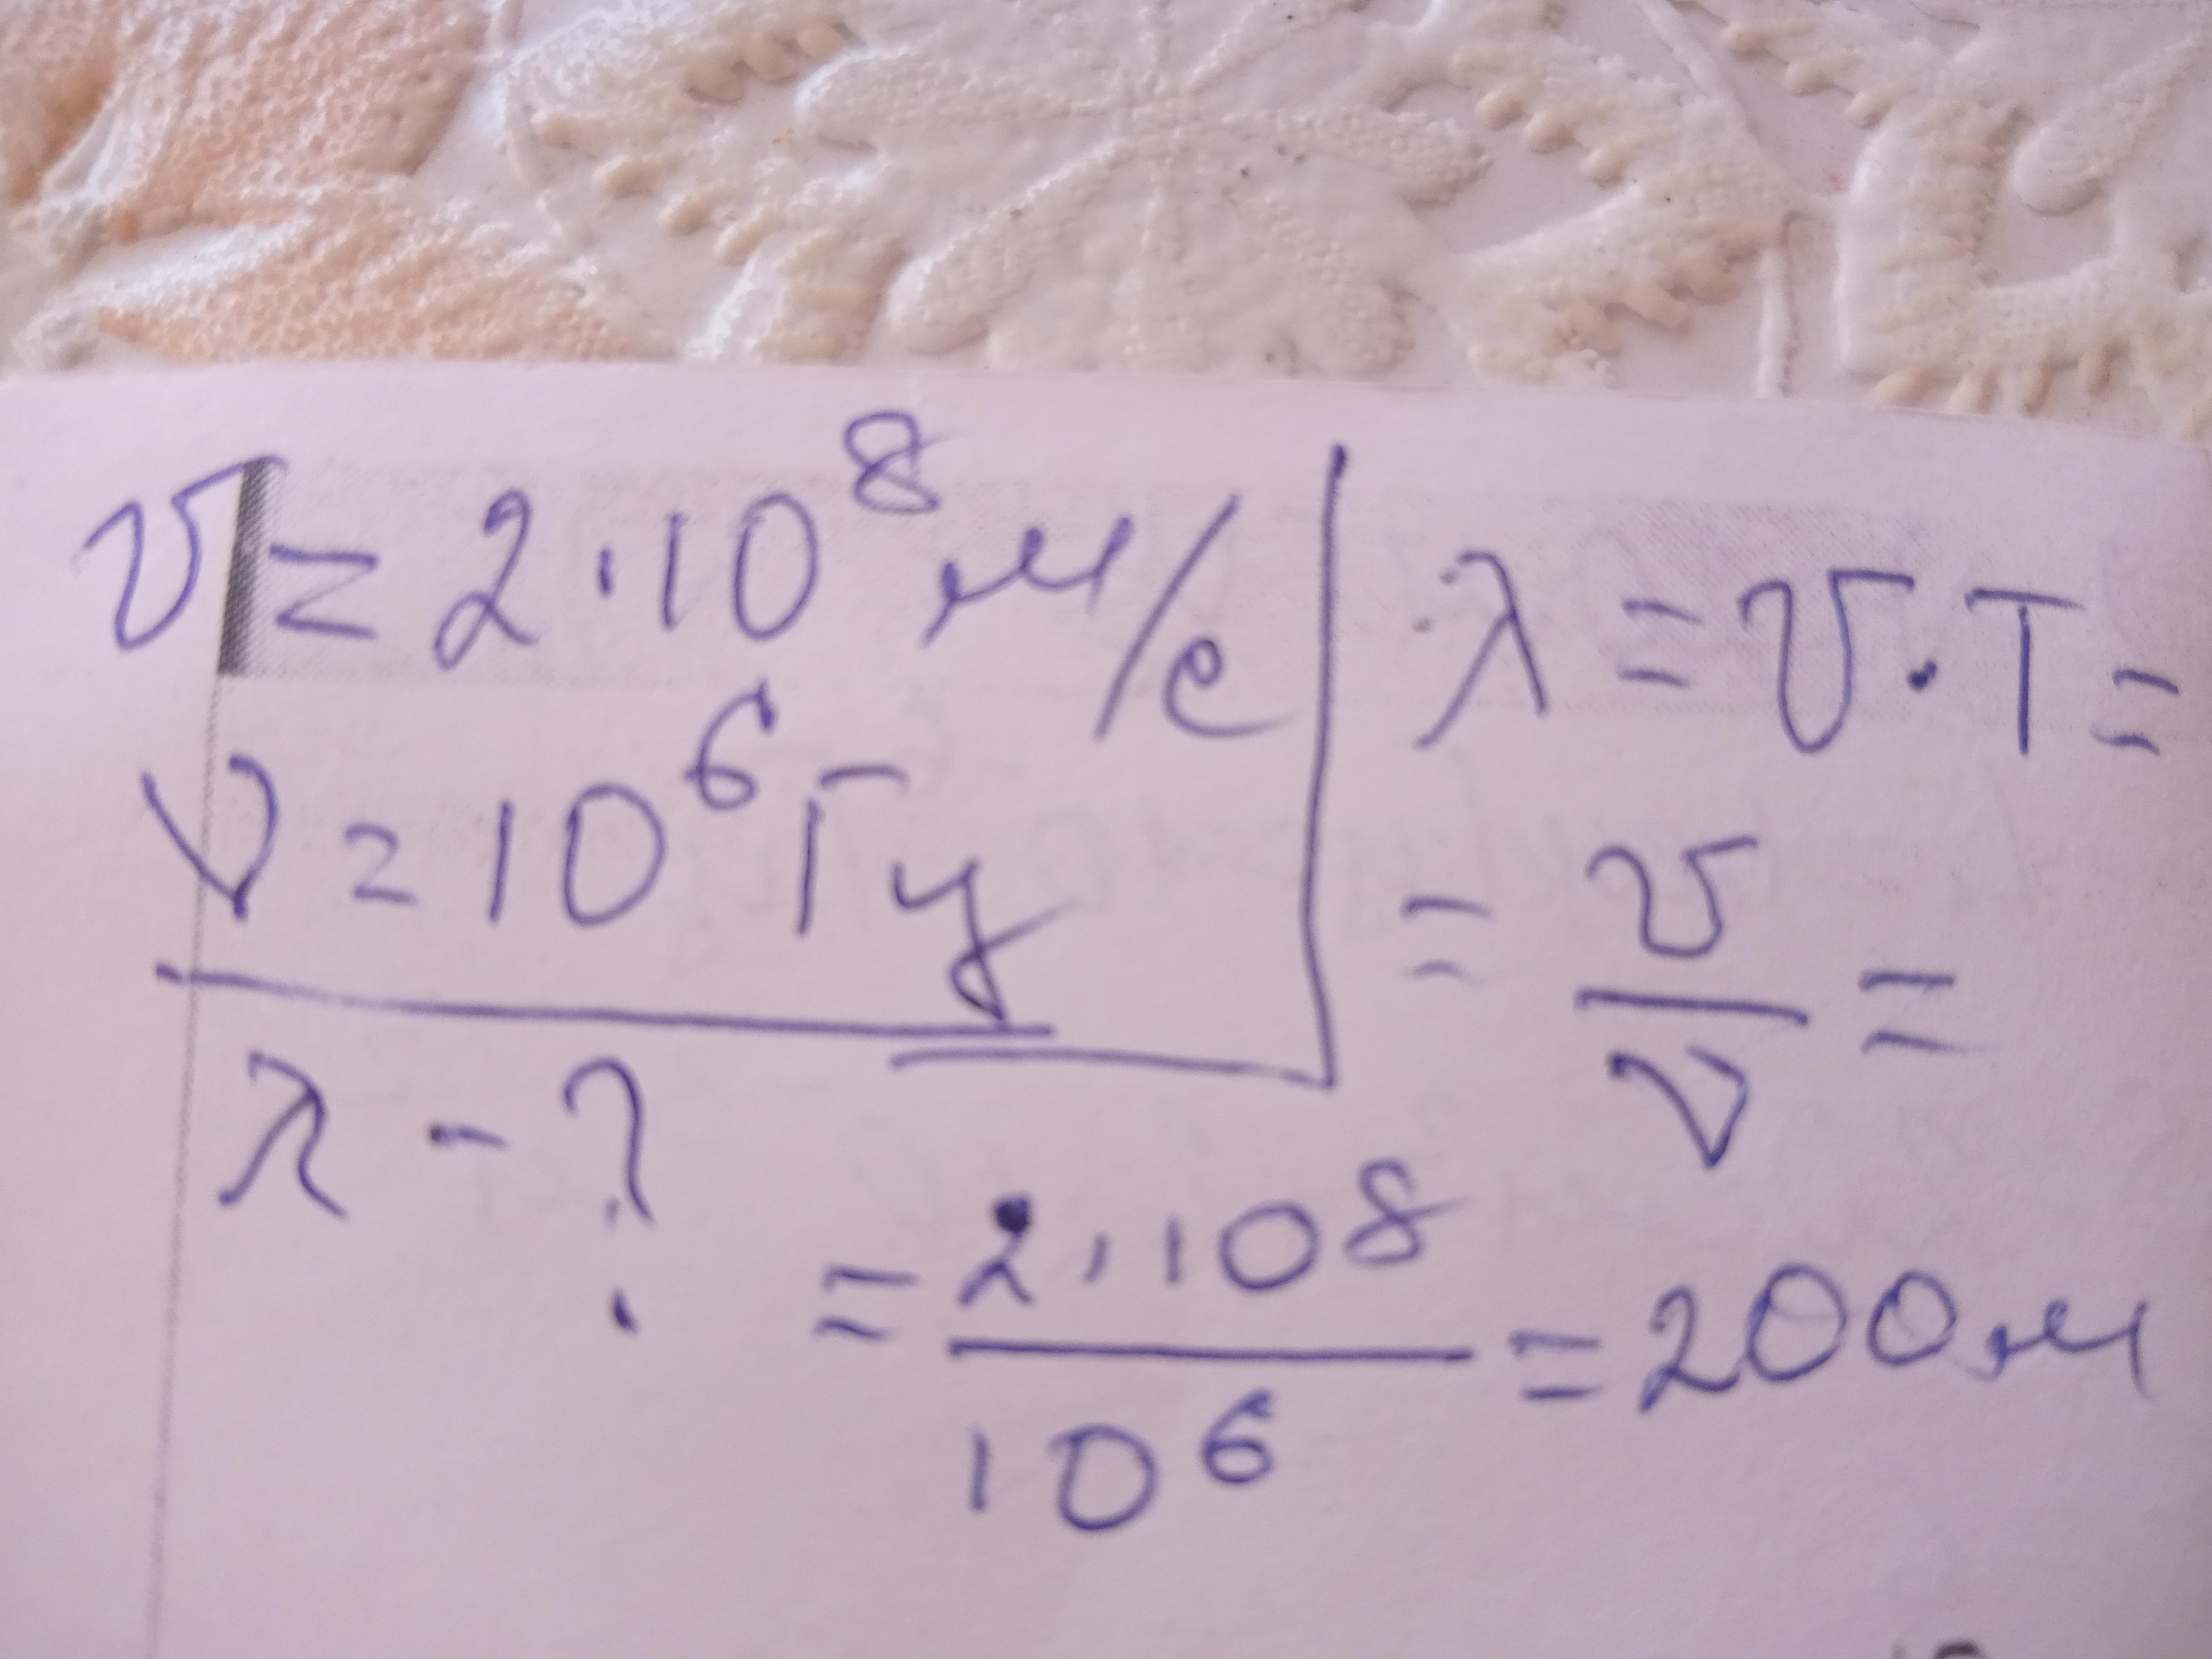 υ = 2·10⁸ м/с
ν = 10⁶ Гц
λ - ?
λ = υ·T =
= υ/ν =
= 2·10⁸/10⁶ = 200 м